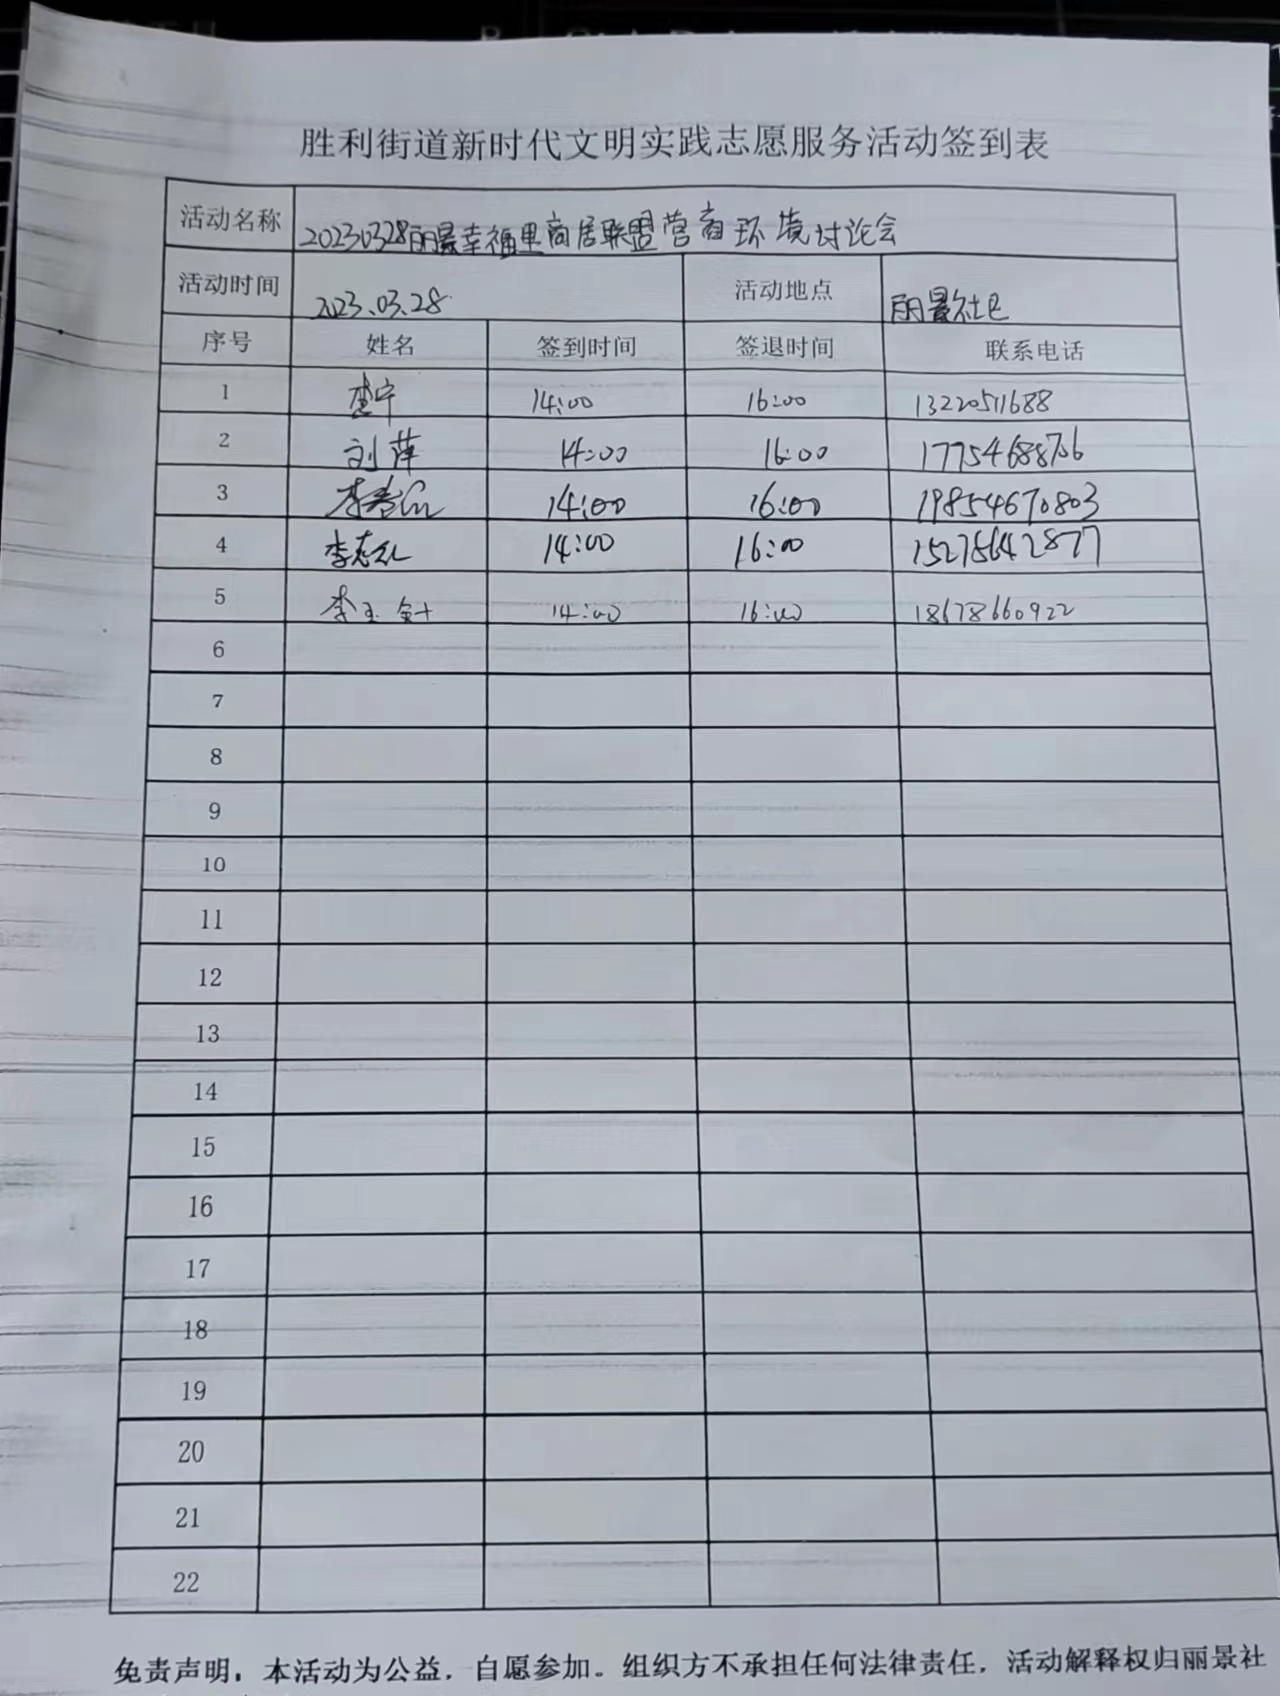 胜利街道新时代文明实践志愿服务活动签到表
活动名称 20230328丽景幸福里商居联盟营商环境讨论会
活动时间 2023.03.28 活动地点 丽景社区
序号 姓名 签到时间 签退时间 联系电话
1 李宁 14:00 16:00 13220511688
2 刘萍 14:00 16:00 17754688736
3 14:00 16:00 19854670803
4 李志红 14:00 16:00 15275642877
5 李玉 14:00 16:00 18678660922
6
7
8
9
10
11
12
13
14
15
16
17
18
19
20
21
22
免责声明：本活动为公益，自愿参加。组织方不承担任何法律责任，活动解释权归丽景社